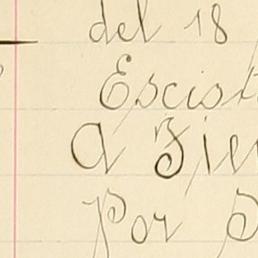 del 18
Escist
A Fien
Por